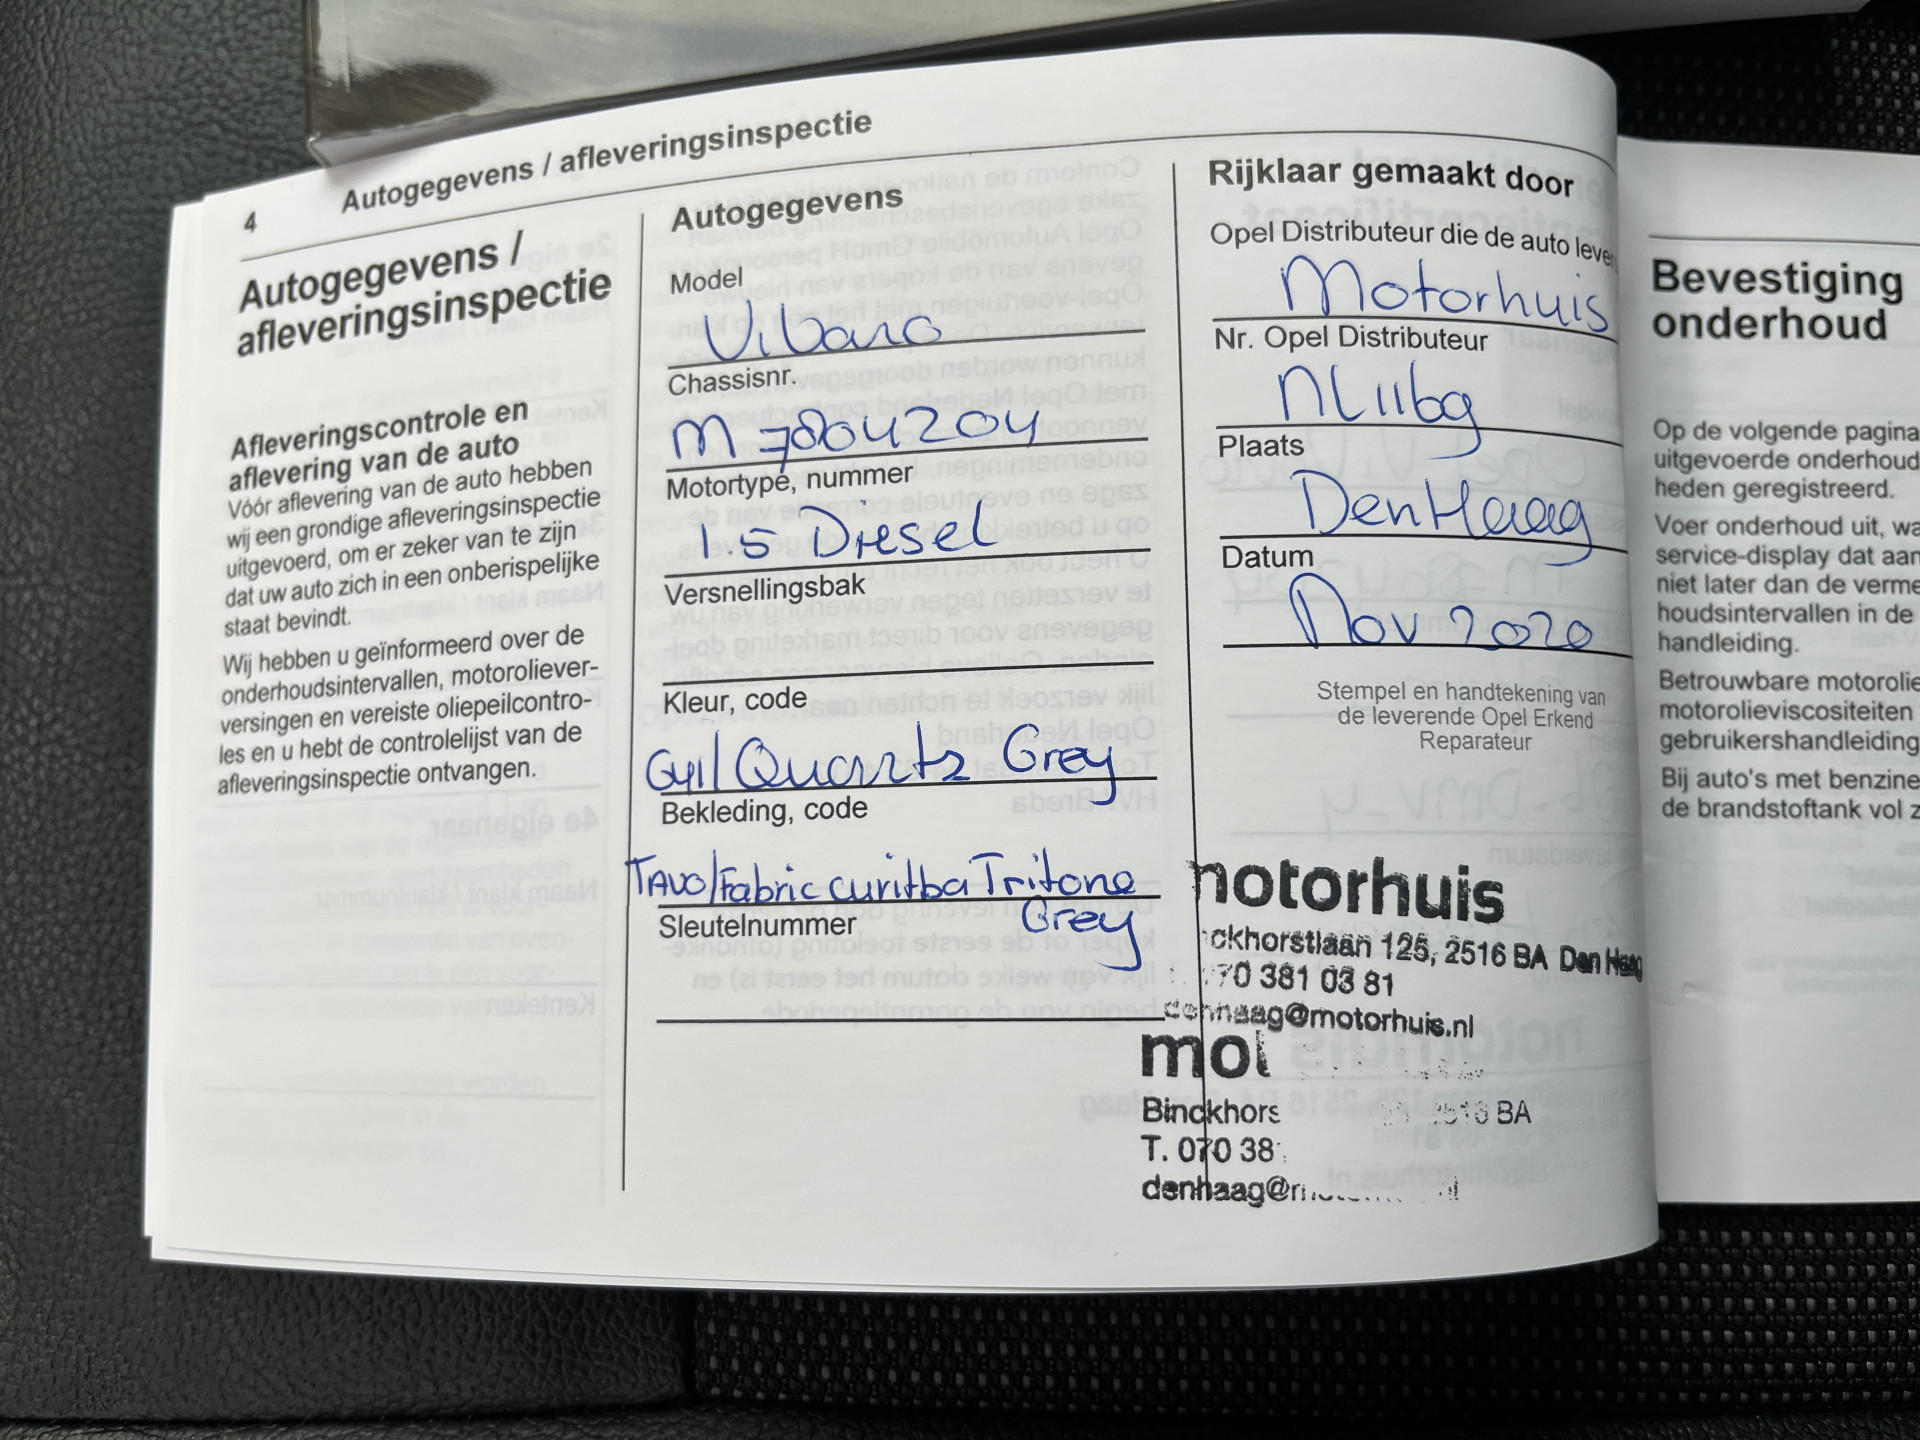 4 Autogegevens / afleveringsinspectie
Autogegevens /
afleveringsinspectie
Afleveringscontrole en
aflevering van de auto
Vóór aflevering van de auto hebben
wij een grondige afleveringsinspectie
uitgevoerd, om er zeker van te zijn
dat uw auto zich in een onberispelijke
staat bevindt.
Wij hebben u geïnformeerd over de
onderhoudsintervallen, motoroliever-
versingen en vereiste oliepeilcontro-
les en u hebt de controlelijst van de
afleveringsinspectie ontvangen.
Autogegevens
Model
Vivaro
Chassisnr.
M7804204
Motortype, nummer
1.5 Diesel
Versnellingsbak
Kleur, code
G41/Quartz Grey
Bekleding, code
TAVO/Fabric curitba Tritone
Grey
Sleutelnummer
Rijklaar gemaakt door
Opel Distributeur die de auto lever
Motorhuis
Nr. Opel Distributeur
NL116g
Plaats
Den Haag
Datum
Nov 2020
Stempel en handtekening van
de leverende Opel Erkend
Reparateur
motorhuis
ckhorstlaan 125, 2516 BA Den Haag
070 381 03 81
denhaag@motorhuis.nl
mot
Binckhors 2516 BA
T. 070 38
denhaag@m
Bevestiging
onderhoud
Op de volgende pagina
uitgevoerde onderhoud
heden geregistreerd.
Voer onderhoud uit, wa
service-display dat aan
niet later dan de verme
houdsintervallen in de
handleiding.
Betrouwbare motorolie
motorolieviscositeiten
gebruikershandleiding
Bij auto's met benzine
de brandstoftank vol z